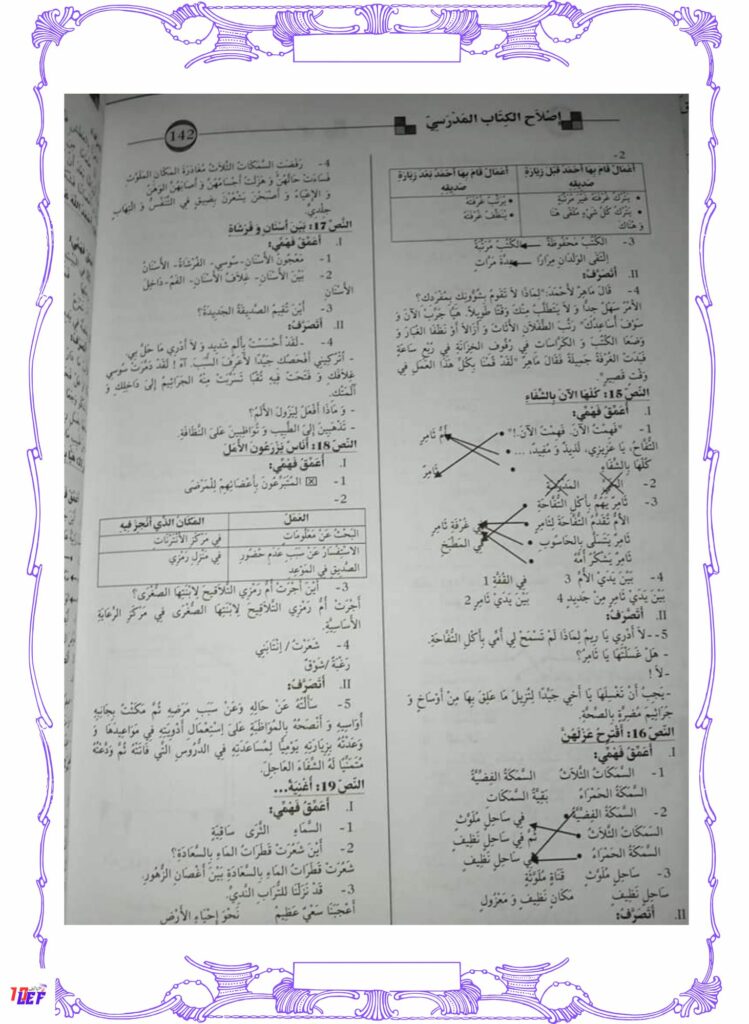 إصْلَاح الكِتَاب المَدْرَسِيّ
142
2-
أعْمَالٌ قَامَ بِهَا أحْمَدُ قَبْلَ زِيَارَةِ صَدِيقِهِ
أعْمَالٌ قَامَ بِهَا أحْمَدُ بَعْدَ زِيَارَةِ صَدِيقِهِ
• يَتْرُكُ غُرْفَتَهُ غَيْرَ مُرَتَّبَةٍ
• يُرَتِّبُ غُرْفَتَهُ
• يَتْرُكُ كُلَّ شَيْءٍ مُلْقًى هُنَا وَ هُنَاكَ
• يُنَظِّفُ غُرْفَتَهُ
3- الكُتُبُ مَحْفُوظَةٌ الكُتُبُ مُرَتَّبَةٌ
اِلْتَقَى الوَلَدَانِ مِرَارًا عِدَّةَ مَرَّاتٍ
II. أتَصَرَّفُ:
4- قَالَ مَاهِرٌ لِأَحْمَدَ:"لِمَاذَا لَا تَقُومُ بِشُؤُونِكَ بِمُفْرَدِكَ؟
الأمْرُ سَهْلٌ جِدًّا وَ لَا يَتَطَلَّبُ مِنْكَ وَقْتًا طَوِيلًا. هَيَّا جَرِّبْ الآنَ وَ
سَوْفَ أُسَاعِدُكَ" رَتَّبَ الطِّفْلَانِ الأثَاثَ وَ أزَالَا أوْ نَظَّفَا الغُبَارَ وَ
وَضَعَا الكُتُبَ وَ الكُرَّاسَاتِ فِي رُفُوفِ الخِزَانَةِ فِي رُبْعِ سَاعَةٍ
فَبَدَتْ الغُرْفَةُ جَمِيلَةً فَقَالَ مَاهِرٌ "لَقَدْ قُمْنَا بِكُلِّ هَذَا العَمَلِ فِي
وَقْتٍ قَصِيرٍ".
النَّصّ 15: كُلْهَا الآنَ بِالشِّفَاءِ
I. أُعَمِّقُ فَهْمِي:
1- "فَهِمْتُ الآنَ. فَهِمْتُ الآنَ.!" أُمُّ ثَامِرٍ
التُّفَّاحُ، يَا عَزِيزِي، لَذِيذٌ وَ مُفِيدٌ، ...
كُلْهَا بِالشِّفَاءِ ثَامِرٌ
2- المَدْرَسَة
3- ثَامِرٌ يَهُمُّ بِأكْلِ التُّفَّاحَةِ
الأُمُّ تُقَدِّمُ التُّفَّاحَةَ لِثَامِرٍ فِي غُرْفَةِ ثَامِرٍ
ثَامِرٌ يَتَسَلَّى بِالحَاسُوبِ فِي المَطْبَخِ
ثَامِرٌ يَشْكُرُ أُمَّهُ
4- بَيْنَ يَدَيْ الأُمِّ 3 فِي القُفَّةِ 1
بَيْنَ يَدَيْ ثَامِرٍ مِنْ جَدِيدٍ 4 بَيْنَ يَدَيْ ثَامِرٍ 2
II. أتَصَرَّفُ:
5- -لَا أدْرِي يَا رِيمُ لِمَاذَا لَمْ تَسْمَحْ لِي أُمِّي بِأكْلِ التُّفَّاحَةِ.
- هَلْ غَسَلْتَهَا يَا ثَامِرُ؟
-لَا !
-يَجِبُ أنْ تَغْسِلَهَا يَا أخِي جَيِّدًا لِتُزِيلَ مَا عَلِقَ بِهَا مِنْ أوْسَاخٍ وَ
جَرَاثِيمَ مُضِرَّةٍ بِالصِّحَّةِ.
النَّصّ 16: أقْتَرِحُ عَزْلَهُنَّ
I. أُعَمِّقُ فَهْمِي:
1- السَّمَكَاتُ الثَّلَاثُ السَّمَكَةُ الفِضِّيَّةُ
السَّمَكَةُ الحَمْرَاءُ بَقِيَّةُ السَّمَكَاتِ
2- السَّمَكَةُ الفِضِّيَّةُ فِي سَاحِلٍ مُلَوَّثٍ
السَّمَكَاتُ الثَّلَاثُ ثُمَّ فِي سَاحِلٍ نَظِيفٍ
السَّمَكَةُ الحَمْرَاءُ فِي سَاحِلٍ نَظِيفٍ
3- سَاحِلٍ مُلَوَّثٍ قَنَاةٍ مُلَوَّثَةٍ
سَاحِلٍ نَظِيفٍ مَكَانٍ نَظِيفٍ وَ مَعْزُولٍ
II. أتَصَرَّفُ:
4- رَفَضَتْ السَّمَكَاتُ الثَّلَاثُ مُغَادَرَةَ المَكَانِ المُلَوَّثِ
فَسَاءَتْ حَالَتُهُنَّ وَ هَزُلَتْ أجْسَامُهُنَّ وَ أصَابَهُنَّ الوَهَنُ
وَ الإعْيَاءُ وَ أصْبَحْنَ يَشْعُرْنَ بِضِيقٍ فِي التَّنَفُّسِ وَ الْتِهَابٍ
جِلْدِيٍّ.
النَّصّ 17: بَيْنَ أسْنَانٍ وَ فُرْشَاةٍ
I. أُعَمِّقُ فَهْمِي:
1- مَعْجُونُ الأسْنَانِ-سُوسِي- الفُرْشَاةُ- الأسْنَانُ
2- بَيْنَ الأسْنَانِ- غِلَافُ الأسْنَانِ- الفَمُ-دَاخِلَ
الأسْنَانِ
3- أيْنَ تُقِيمُ الصَّدِيقَةُ الجَدِيدَةُ؟
II. أتَصَرَّفُ:
4- -لَقَدْ أحْسَسْتُ بِألَمٍ شَدِيدٍ وَ لَا أدْرِي مَا حَلَّ بِي.
- اُتْرُكِينِي أفْحَصُكِ جَيِّدًا لِأعْرِفَ السَّبَبَ. آهْ ! لَقَدْ دَمَّرَتْ سُوسِي
غِلَافَكِ وَ فَتَحَتْ فِيهِ ثُقْبًا تَسَرَّبَتْ مِنْهُ الجَرَاثِيمُ إلَى دَاخِلِكِ وَ
آلَمَتْكِ.
- وَ مَاذَا أفْعَلُ لِيَزُولَ الألَمُ؟
- تَذْهَبِينَ إلَى الطَّبِيبِ وَ تُوَاظِبِينَ عَلَى النَّظَافَةِ.
النَّصّ 18: أُنَاسٌ يَزْرَعُونَ الأمَلَ
I. أُعَمِّقُ فَهْمِي:
1- ☒ المُتَبَرِّعُونَ بِأعْضَائِهِمْ لِلْمَرْضَى
2-
العَمَلُ
المَكَانُ الذِّي أُنْجِزَ فِيهِ
البَحْثُ عَنْ مَعْلُومَاتٍ
فِي مَرْكَزِ الأنْتَرْنَاتِ
الاسْتِفْسَارُ عَنْ سَبَبِ عَدَمِ حُضُورِ الصَّدِيقِ فِي المَوْعِدِ
فِي مَنْزِلِ رَمْزِي
3- أيْنَ أجْرَتْ أُمُّ رَمْزِي التَّلَاقِيحَ لِابْنَتِهَا الصُّغْرَى؟
أجْرَتْ أُمُّ رَمْزِي التَّلَاقِيحَ لِابْنَتِهَا الصُّغْرَى فِي مَرْكَزِ الرِّعَايَةِ
الأسَاسِيَّةِ.
4- شَعَرْتُ/ اِنْتَابَنِي
رَغْبَةٌ/ شَوْقٌ
II. أتَصَرَّفُ:
5- سَألْتُهُ عَنْ حَالِهِ وَعَنْ سَبَبِ مَرَضِهِ ثُمَّ مَكَثْتُ بِجَانِبِهِ
أُوَاسِيهِ وَ أنْصَحُهُ بِالمُوَاظَبَةِ عَلَى اِسْتِعْمَالِ أدْوِيَتِهِ فِي مَوَاعِيدِهَا وَ
وَعَدْتُهُ بِزِيَارَتِهِ يَوْمِيًّا لِمُسَاعَدَتِهِ فِي الدُّرُوسِ التِّي فَاتَتْهُ ثُمَّ وَدَّعْتُهُ
مُتَمَنِّيًا لَهُ الشِّفَاءَ العَاجِلَ.
النَّصّ 19: أُغْنِيَةُ...
I. أُعَمِّقُ فَهْمِي:
1- السَّمَاءِ الثَّرَى سَاقِيَةٍ
2- أيْنَ شَعَرَتْ قَطَرَاتُ المَاءِ بِالسَّعَادَةِ؟
شَعَرَتْ قَطَرَاتُ المَاءِ بِالسَّعَادَةِ بَيْنَ أغْصَانِ الزُّهُورِ.
3- قَدْ نَزَلْنَا لِلتُّرَابِ النَّدِيِّ.
أعْجَبَنَا سَعْيٌ عَظِيمٌ نَحْوَ إحْيَاءِ الأرْضِ